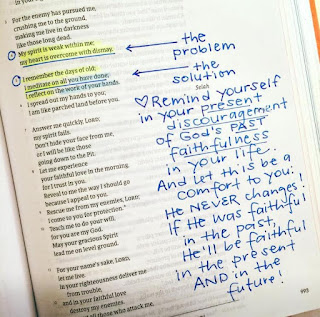 For the enemy has pursued me,
crushing me to the ground,
making me live in darkness
like those long dead.
My spirit is weak within me;
my heart is overcome with dismay.
I remember the days of old;
I meditate on all you have done;
I reflect on the work of your hands.
I spread out my hands to you;
I am like parched land before you.
Selah
Answer me quickly, LORD;
my spirit fails.
Don't hide your face from me,
or I will be like those
going down to the Pit.
Let me experience
your faithful love in the morning,
for I trust in you.
Reveal to me the way I should go
because I appeal to you.
Rescue me from my enemies, LORD;
I come to you for protection.
Teach me to do your will,
for you are my God.
May your gracious Spirit
lead me on level ground.
For your name's sake, LORD,
let me live.
In your righteousness deliver me
from trouble,
and in your faithful love
destroy my enemies.
all those who attack me,
the
problem
the
solution
♡ Remind yourself
in your present
discouragement
of God's PAST
faithfulness
in your life.
And let this be a
comfort to you:
He NEVER changes!
If He was faithful
in the past,
He'll be faithful
in the present
AND in the
future!